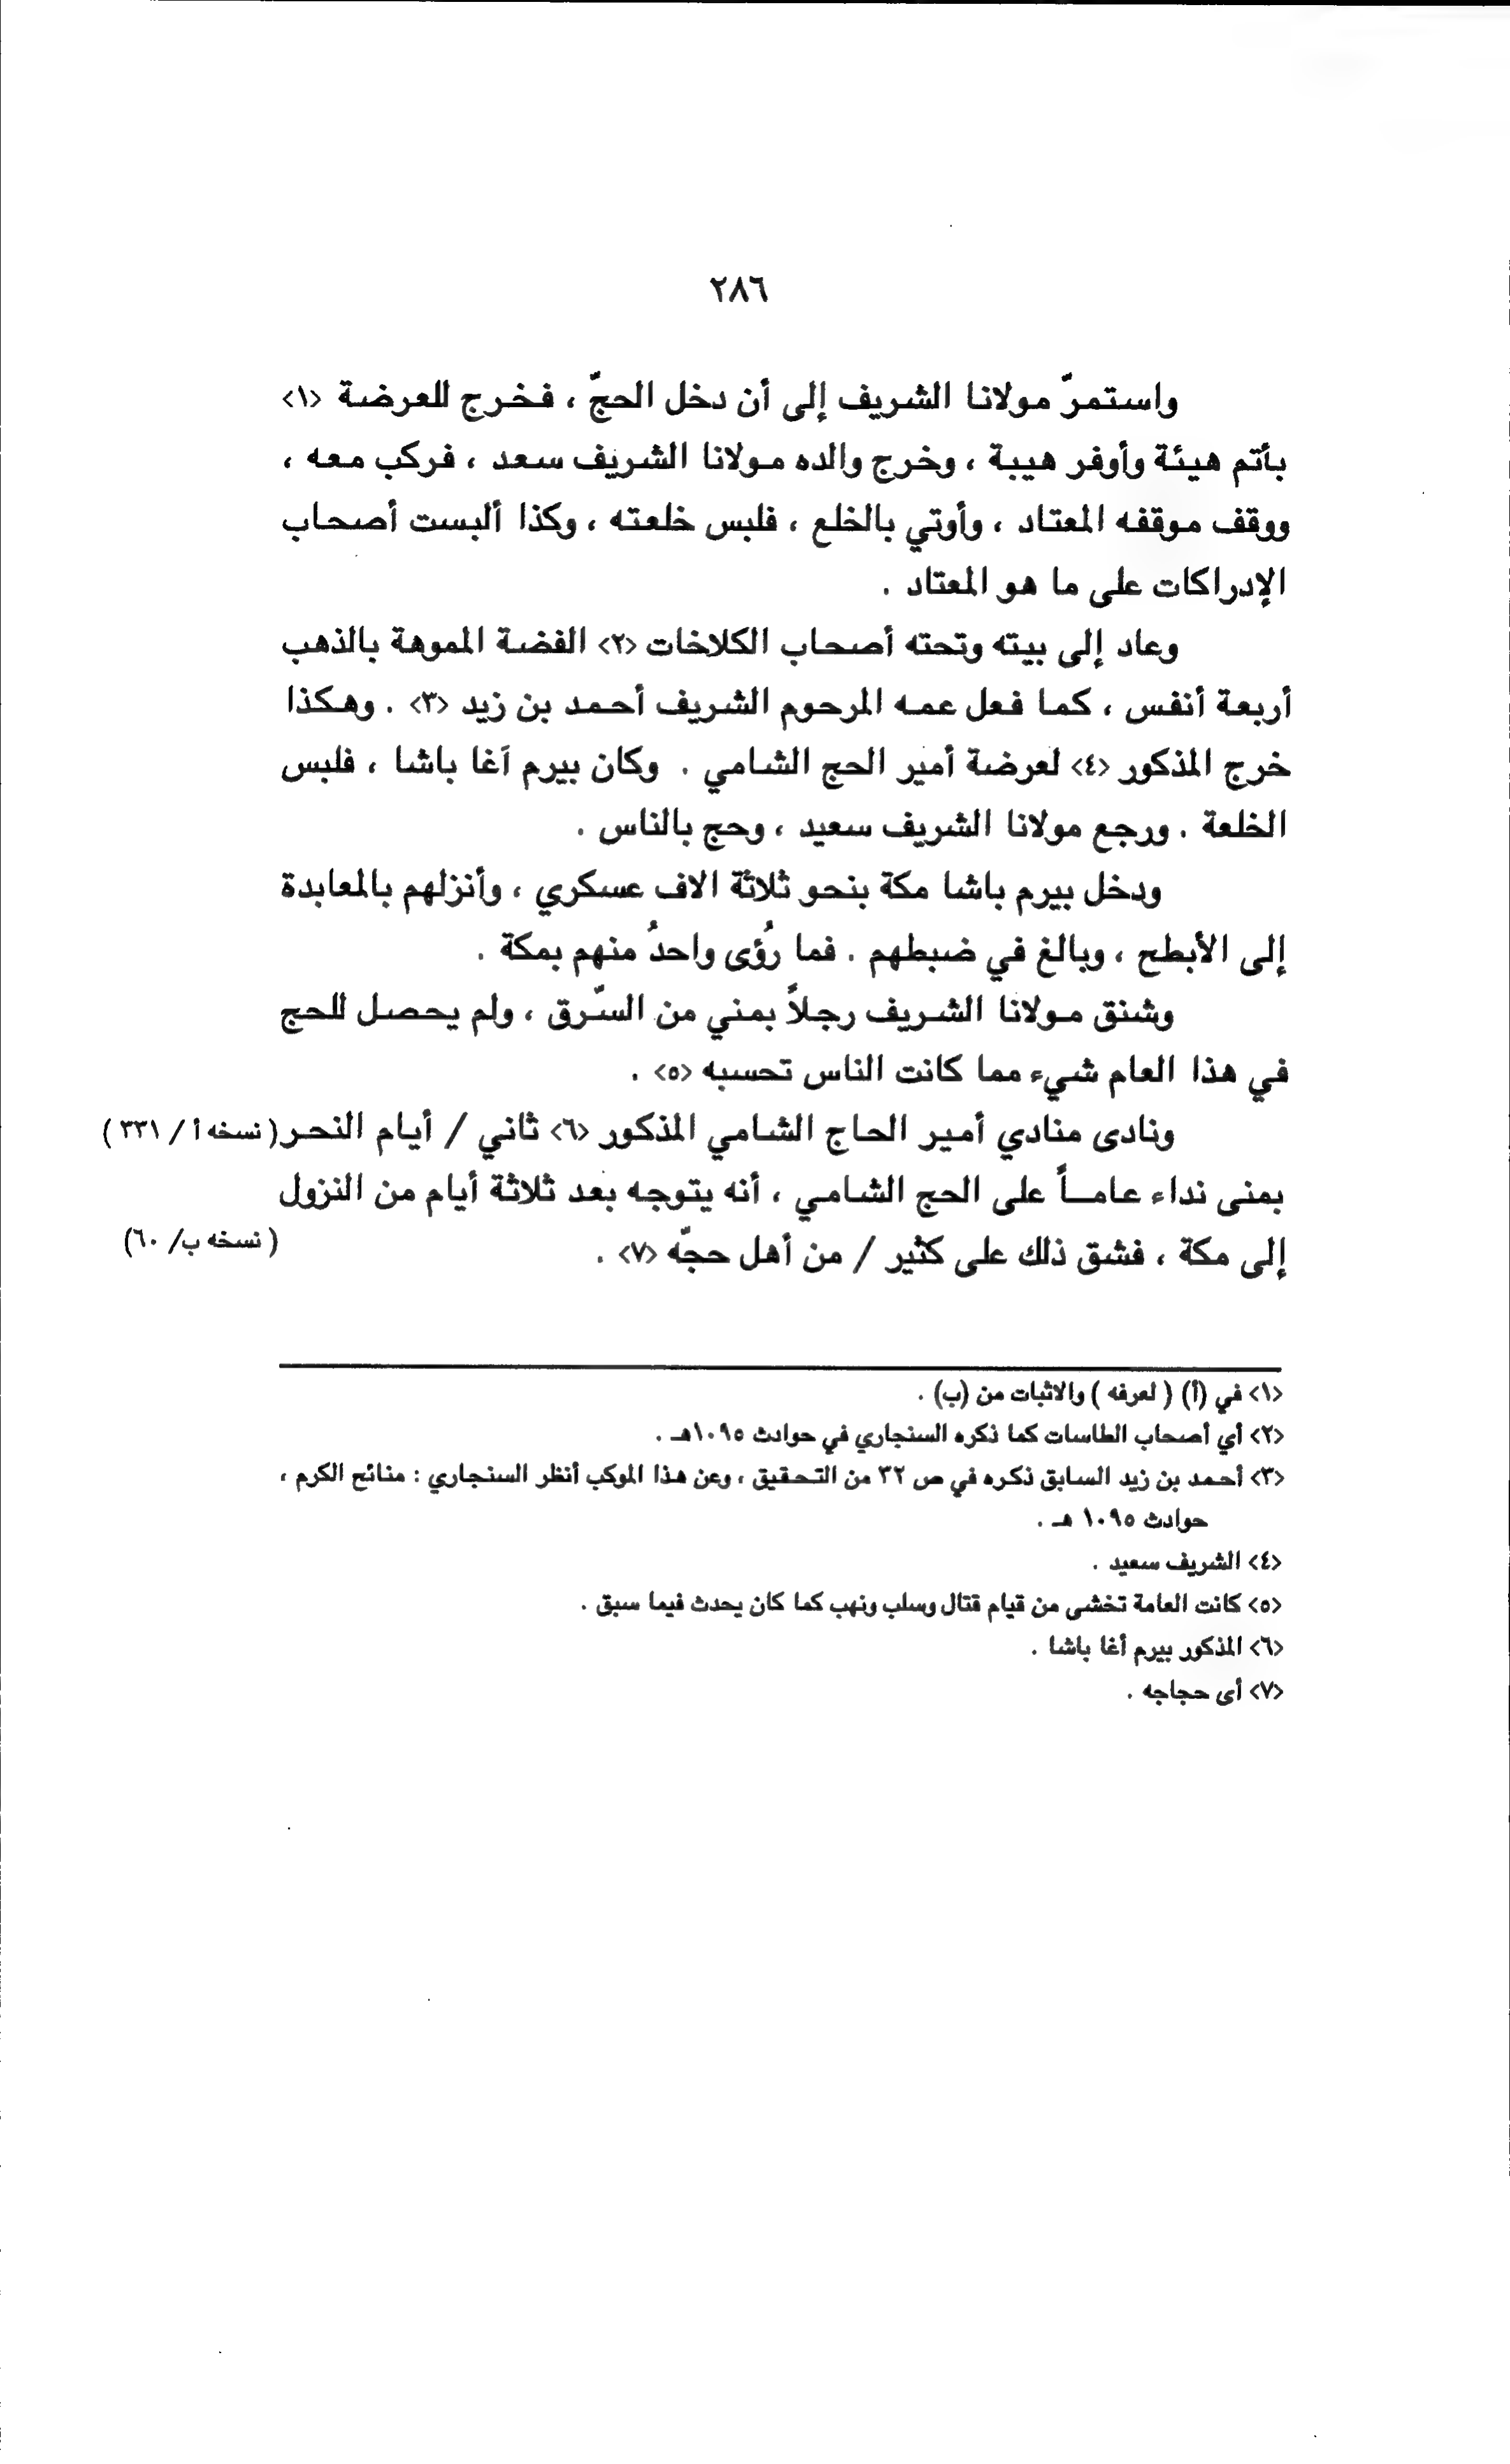 ٢٨٦
واستمرّ مولانا الشريف إلى أن دخل الحجّ ، فخرج للعرضة <١>
بأتم هيئة وأوفر هيبة ، وخرج والده مولانا الشريف سعد ، فركب معه ،
ووقف موقفه المعتاد ، وأوتي بالخلع ، فلبس خلعته ، وكذا ألبست أصحاب
الإدراكات على ما هو المعتاد .
وعاد إلى بيته وتحته أصحاب الكلاخات <٢> الفضة المموهة بالذهب
أربعة أنفس ، كما فعل عمه المرحوم الشريف أحمد بن زيد <٣> . وهكذا
خرج المذكور <٤> لعرضة أمير الحج الشامي . وكان بيرم آغا باشا ، فلبس
الخلعة . ورجع مولانا الشريف سعيد ، وحج بالناس .
ودخل بيرم باشا مكة بنحو ثلاثة الاف عسكري ، وأنزلهم بالمعابدة
إلى الأبطح ، وبالغ في ضبطهم . فما رُؤى واحدُ منهم بمكة .
وشنق مولانا الشريف رجلاً بمني من السّرق ، ولم يحصل للحج
في هذا العام شيء مما كانت الناس تحسبه <٥> .
ونادى منادي أمير الحاج الشامي المذكور <٦> ثاني / أيام النحر ( نسخه أ / ٣٣١ )
بمنى نداء عاماً على الحج الشامي ، أنه يتوجه بعد ثلاثة أيام من النزول
إلى مكة ، فشق ذلك على كثير / من أهل حجّه <٧> . ( نسخه ب/ ٦٠)
<١> في (أ) ( لعرفه ) والاثبات من (ب) .
<٢> أي أصحاب الطاسات كما ذكره السنجاري في حوادث ١٠٩٥هـ .
<٣> أحمد بن زيد السابق ذكره في ص ٣٢ من التحقيق ، وعن هذا الموكب أنظر السنجاري : منائح الكرم ،
حوادث ١٠٩٥ هـ .
<٤> الشريف سعيد .
<٥> كانت العامة تخشى من قيام قتال وسلب ونهب كما كان يحدث فيما سبق .
<٦> المذكور بيرم أغا باشا .
<٧> أى حجاجه .